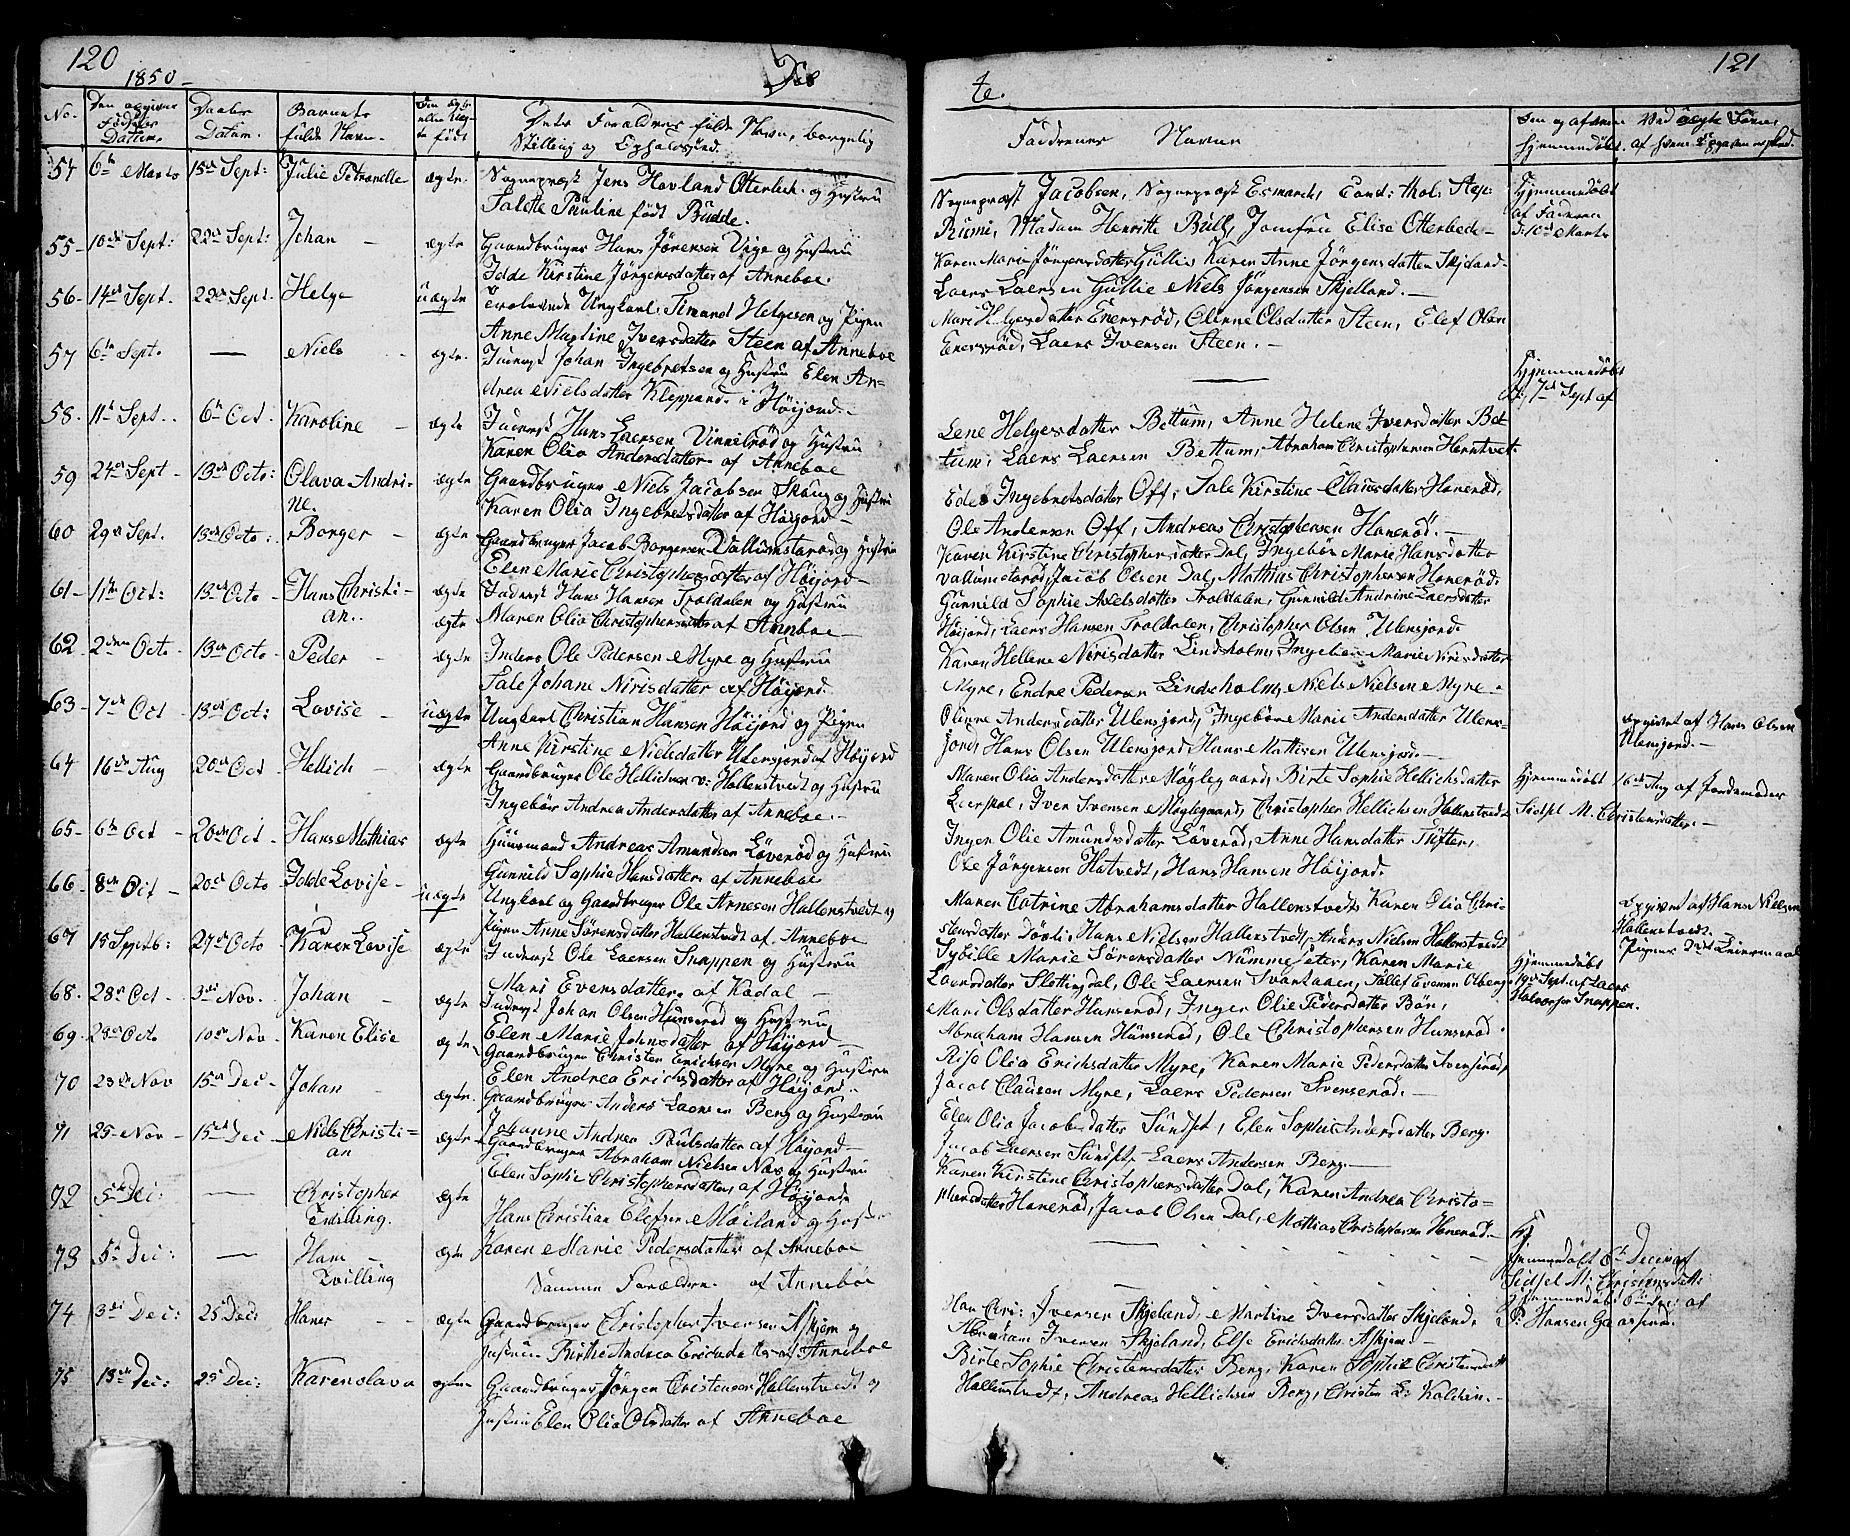 120
1850 -
Døb
No.
Den opgivne Fødsels Datum.
Daabs Datum.
Barnets fulde Navn.
Om ægte eller uægte født
Dets Forældres fulde Navn, borgerlig
Stilling og Opholdssted.
54 6te Marts 15de Sept: Julie Petronelle ægte. Sognepræst Jens Hovland Otterbech og Hustrue
Talette Pauline født Budde.
55- 10de Sept: 22de Sept: Johan - ægte Gaardbruger Hans Jörensen Vige og Hustru
Idde Kirstine Jörgensdatter af Anneboe.
56- 14de Sept. 22de Sept. Helge uægte Ungkarl Amund Helgesen og Pigen
Anne Martine Iversdatter Steen af Anneboe
57 6te Sept. — Niels ægte. Inderst Johan Ingebretsen og Hustru Elen An-
drea Nielsdatter Kleppand i Höijord.
58. 11te Sept. 6te Oct Karoline - ægte Inderst Hans Laersen Vinnelröd og Hustru
Karen Olia Andersdatter af Anneboe
59 24de Sept - 13de Octo: Olava Andri- ægte Gaardbruger Niels Jacobsen Skoug og Hustru
ne. Karen Olia Ingebretsdatter af Höijord -
60 29de Sept. 13de Octo: Borger - ægte Gaardbruger Jacob Borgersen Vallumstaröd og Hustru
Elen Marie Christophersdatter af Höijord -
61- 11te Oct: 13de Octo - Hans Christi- ægte Inderst Hans Hansen Troldalen og Hustru
an.. ægte Maren Olia Christophersdatter af Anneboe -
62 2den Octo 13de Octo - Peder - ægte Inderst Ole Pedersen Myre og Hustru
Tale Johane Nirisdatter af Höijord
63 - 7de Oct - 13de Oct: Lovise - uægte Ungkarl Christian Hansen Höijord og Pigen
Anne Kirstine Nielsdatter Ulensjord af Höijord
64 16de Aug 20de Oct - Hellich - ægte Gaardbruger Ole Hellichsen v: Hallenstvedt og Hustru
Ingebör Andrea Andersdatter af Anneboe.-
65- 6te Oct - 20de Oct - Hans Mathias ægte Huusmand Andreas Amundsen Löveröd og Hustru
Gunnild Sophie Hansdatter af Anneboe
66 - 8de Oct - 20de Octo Idde Lovise - uægte Ungkarl og Gaardbruger Ole Arnesen Hallenstvedt og
Pigen Anne Sörensdatter Hallenstvedt af Anneboe
67 18 Septb: 27de Octo Karen Lovise ægte Inderst Ole Laersen Snappen og Hustru
Mari Evensdatter af Kodal -
68. 28de Oct - 3de Nov. Johan - ægte Inderst Johan Olsen Hunseröd og Hustru
Elen Marie Johnsdatter af Höijord -
69. 28de Octo 10de Nov. Karen Elise ægte Gaardbruger Christen Ericksen Myre og Hustru
Elen Andrea Ericksdatter af Höijord.-
70 23de Nov 15de Dec - Johan - ægte. Gaardbruger Anders Laersen Berg og Hustru
Johanne Andrea Poulsdatter af Höijord -
71 25 Nov - 15de Dec - Niels Christi- ægte Gaardbruger Abraham Nielsen Næs og Hustru
an Elen Sophie Christophersdatter af Höijord
72 5te Dec: — Christopher ægte Hans Christian Olefsen Möiland og Hustr
Tvilling. Karen Marie Pedersdatter af Anneboe
73 5te Dec: — Hans - ægte Samme Forældre af Anneboe
Tvilling
74 3die Dec: 25 Dec: Hans - - ægte Gaardbruger Christopher Iversen Askjem og
Hustrue Birthe Andrea Ericksdatter af Anneboe
75 13de Dec: 25 Dec: Karen Olava ægte Gaardbruger Jörgen Cristensen Hallenstvedt og
Hustrue Elen Olia Olsdatter af Anneboe
121
te.
Faddrenes Navne
Om og af hvem hjemmedøbt.
Ved uægte Børn, af hvem Opgaven er skeed.
Sognepræst Jacobsen, Sognepræst Esmarch, Cand: thol: Step:
Rumi, Madam Henritte Bull, Jomfru Elise Otterbech -
Hjemmedöbt
af Faderen
D: 10de Marts
Karen Marie Jörgensdatter Gullie, Karen Anne Jörgensdatter Skjeland
Laers Laersen Gullie Niels Jörgensen Skjelland.-
Mari Helgesdatter Eneröd, Olinne Olsdatter Steen, Elef Olsen
Eneröd, Laers Iversen Steen.-
—
Hjemmedöbt
D: 7de Sept af
Lene Helgesdatter Bettum, Anne Helene Iversdatter Bet-
tum, Laers Laersen Bettum, Abraham Christophersen Herntvet.
Ede Ingebretsdatter Off, Tale Kirstine Clausdatter Haneröd,
Ole Andersen Off, Andreas Christophersen Haneröd.-
Karen Kirstine Christophersdatter Dal, Ingebör Marie Hansdatter
Vallumstaröd, Jacob Olsen Dal, Mathias Christophersen Haneröd.
Gunnild Sophie Axelsdatter Troldalen, Gunnild Andrine Laersdatter
Höijord, Laers Hansen Troldalen, Christopher Olsen Ulensjord
Karen Hellene Nirisdatter Lindholm, Ingeborr Marie Nirisdatter
Myre, Endre Pedersen Lindeholm, Niels Nielsen Myre.-
Olinne Andersdatter Ulensjord, Ingebör Marie Andersdatter Ulens-
jord, Hans Olsen Ulensjord, Hans Mathisen Ulensjord.-
opgivet af Hans Olsen
Ulensjord.-
Maren Olia Andersdatter Möglegaard, Birte Sophie Hellichsdatter
Laerskol, Iver Iversen Möglegaard, Christopher Hellichsen Hallenstvedt
Hjemmedöbt 16de Aug af Jordemoder
Sidsel M. Christensdatter.-
Inger Olie Amundsdatter Löveröd, Anne Hansdatter Tufte,
Ole Jörgensen Hotvedt, Hans Hansen Höijord.
Maren Catrine Abrahamsdatter Hallenstvedt Karen Olia Chri-
stensdatter Dövle, Hans Nielsen Hallenstvedt, Anders Nielsen Hallenstvedt
opgivet af Hans Nielsen
Hallenstvedt.
Pigens 2det Leiermaal
Sybille Marie Sörensdatter Nummeseter, Karen Marie
Laersdatter Slettingdal, Ole Laersen Svartaaen, Tollef Evensen Olberg
Hjemmedöbt
19de Sept. af Laers
Halvorsen Snappen.
Mari Olsdatter Hunseröd, Inger Olie Pedersdatter Bön,
Abraham Hansen Hunseröd, Ole Christophersen Hunseröd.
Riso Olia Ericksdatter Myre, Karen Marie Pedersdatter Svenseröd,
Jacob Clausen Myre, Laers Pedersen Svenseröd.-
Elen Olia Jacobsdatter Sundset, Elen Sophie Andersdatter Berg
Jacob Laersen Sundset, Laers Andersen Berg.-
Karen Kirstine Christophersdatter Dal, Karen Andrea Christo-
phersdatter Haneröd, Jacob Olsen Dal, Mathias Christophersen Haneröd.-
Hjemmedöbt 6te Decem af
Sidsel M: Christensdatter
Hjemmedöbt 6te Dec: af
P: Hansen Gaasserud
Han Chri: Iversen Skjeland, Martine Iversdatter Skjeland,
Abraham Iversen Skjeland, Else Ericksdatter Askjem.-
Birte Sophie Christensdatter Berg, Karen Sophie Christensdatter
Hallenstvedt, Andreas Hellichsen Berg, Christen L: Kolkin.-